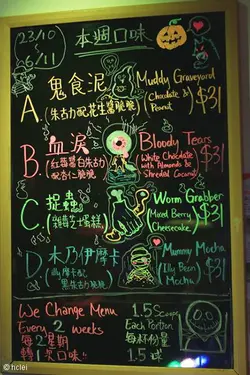 23/10
~ 6/11
本週口味
鬼食泥
Muddy Graveyard
A.
(Chocolate &
Peanut
$31
朱古力配花生醬脆脆
血淚
Bloody Tears
B.
(White Chocolate
with Almonds &
Shredded Coconut)
$31
(紅蘿蔔白朱古力
配杏仁脆脆
捉蟲
Worm Grabber
C.
(Mixed Berry
Cheesecake)
$31
雜莓芝士蛋糕
木乃伊摩卡
Mummy Mocha
D.
(illy Bean)
Mocha
$31
illy 摩卡配
黑朱古力脆脆
We Change Menu
Every 2 weeks
每2星期
轉1次口味!!
1.5 Scoops
Each Portion
每杯份量
1.5球
© hclei